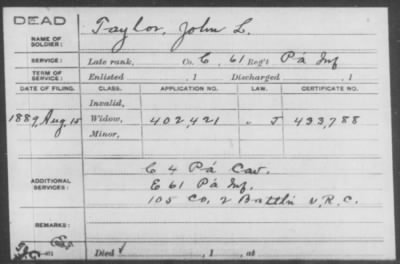 DEAD
NAME OF SOLDIER: Taylor, John L.
SERVICE: Late rank, Co. E, 61 Reg't Pa Inf
TERM OF SERVICE: Enlisted , 1 Discharged , 1
DATE OF FILING. CLASS. APPLICATION NO. LAW. CERTIFICATE NO.
Invalid,
1889, Aug. 15 Widow, 402,421 " J 433,788
Minor,
ADDITIONAL SERVICES: C 4 Pa Cav.
E 61 Pa Inf.
105 Co, 2 Battln V.R.C.
REMARKS:
Died , 1 , at